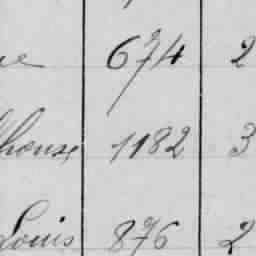 ue 674 2
lhonse 1182 3
Louis 876 2